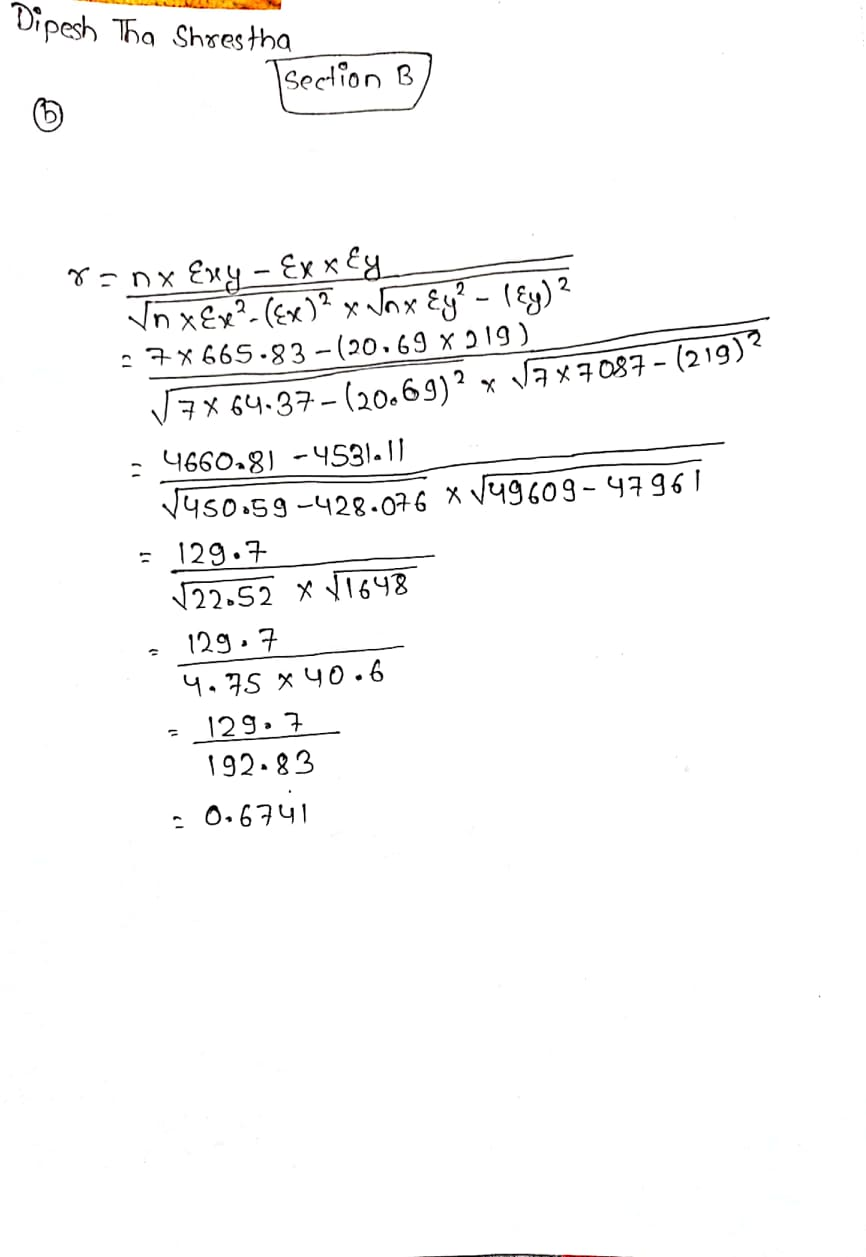 Dipesh Tha Shrestha
Section B
(b)
r = n x Σxy - Σx x Σy
√n x Σx² - (Σx)² x √n x Σy² - (Σy)²
= 7 x 665.83 - (20.69 x 219)
√7 x 64.37 - (20.69)² x √7 x 7087 - (219)²
= 4660.81 - 4531.11
√450.59 - 428.076 x √49609 - 47961
= 129.7
√22.52 x √1648
= 129.7
4.75 x 40.6
= 129.7
192.83
= 0.6741